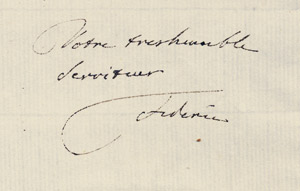 Votre treshumble
Serviteur
Federic